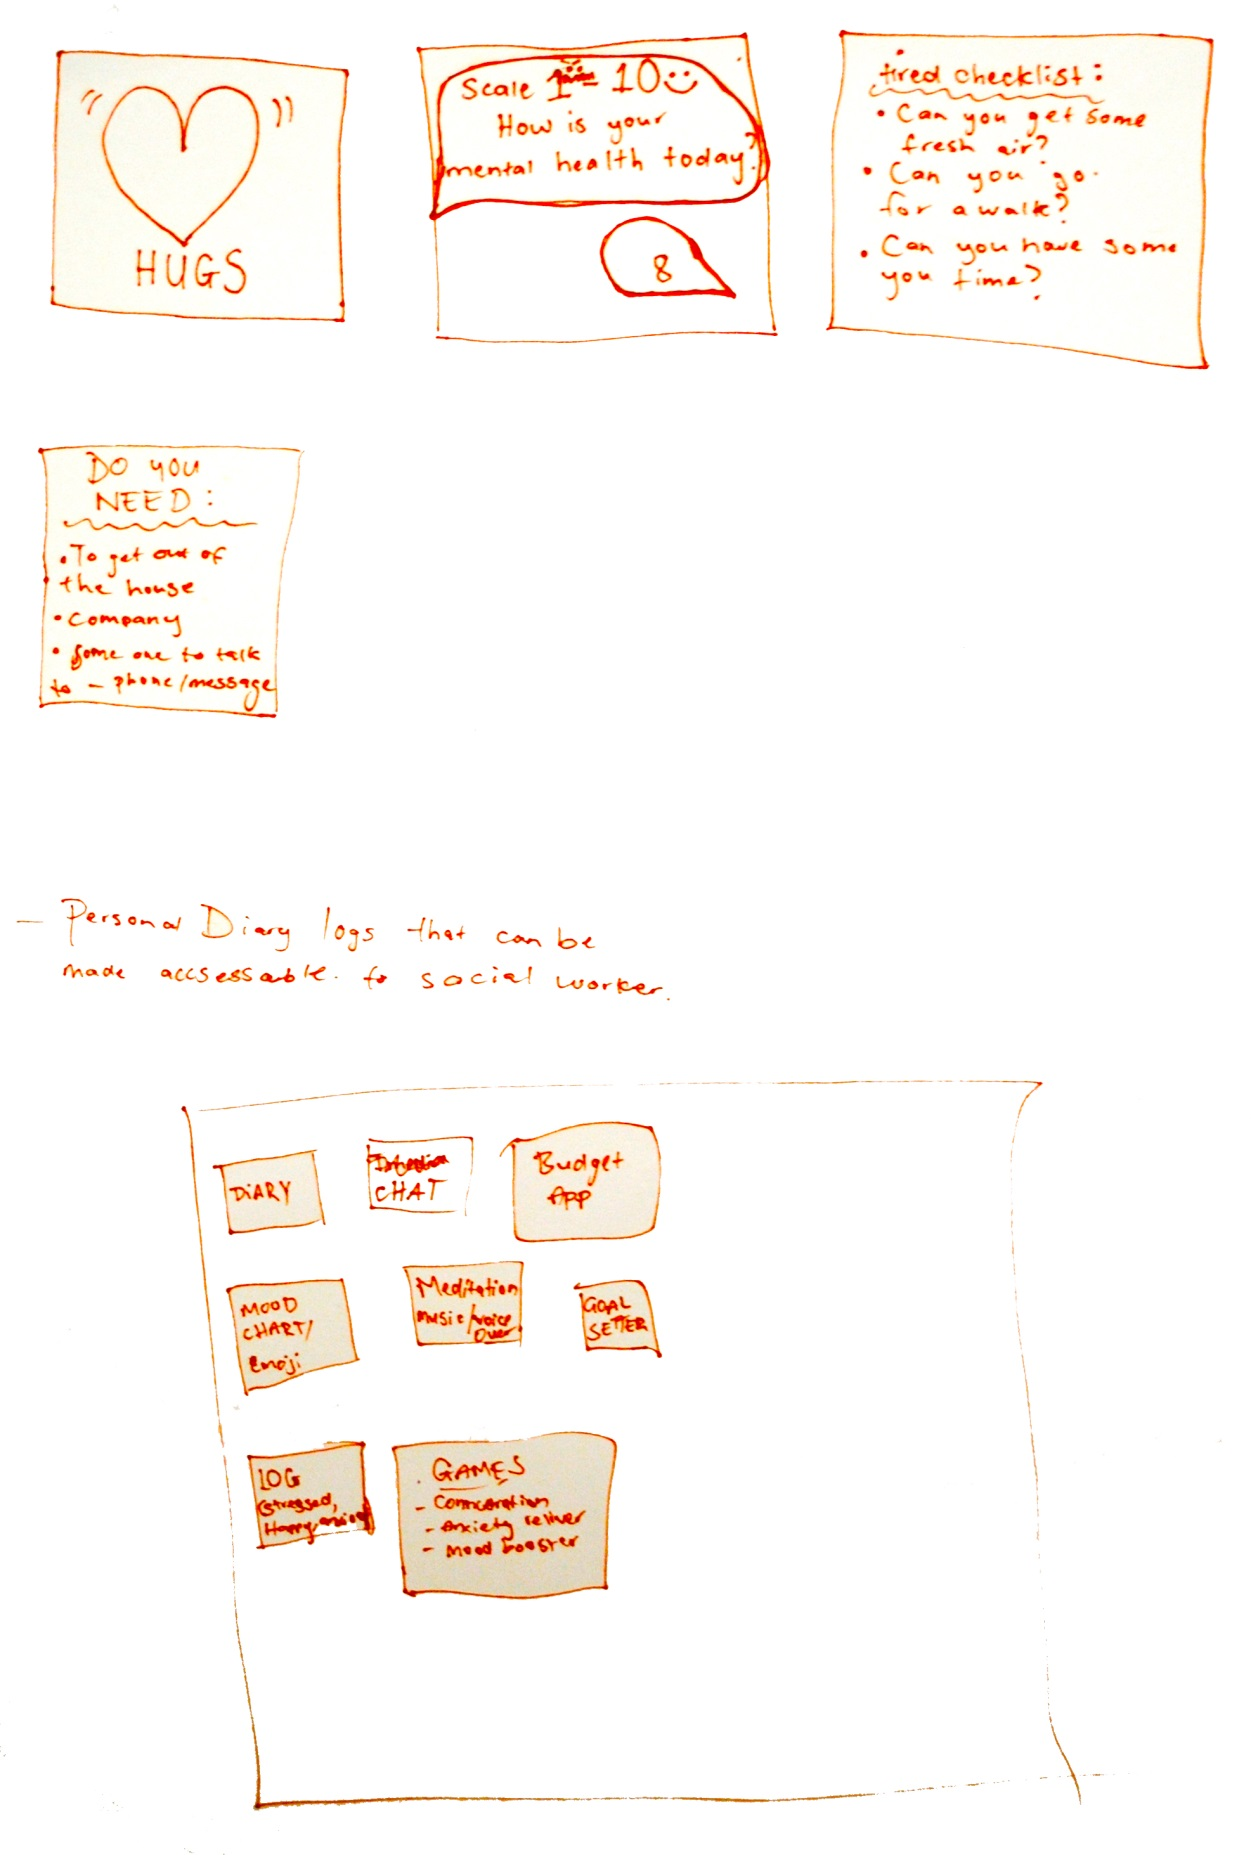 HUGS
Scale 1 - 10
How is your
mental health today?
8
tired checklist:
• Can you get some
fresh air?
• Can you go
for a walk?
• Can you have some
you time?
DO YOU
NEED:
• To get out of
the house
• Company
• Some one to talk
to - phone/message
- Personal Diary logs that can be
made accsessable to social worker.
DIARY
CHAT
Budget
App
MOOD
CHART/
Emoji
Meditation
music/voice
over
GOAL
SETTER
LOG
(stressed,
Happy, anxious)
GAMES
-
- Anxiety reliver
- Mood booster